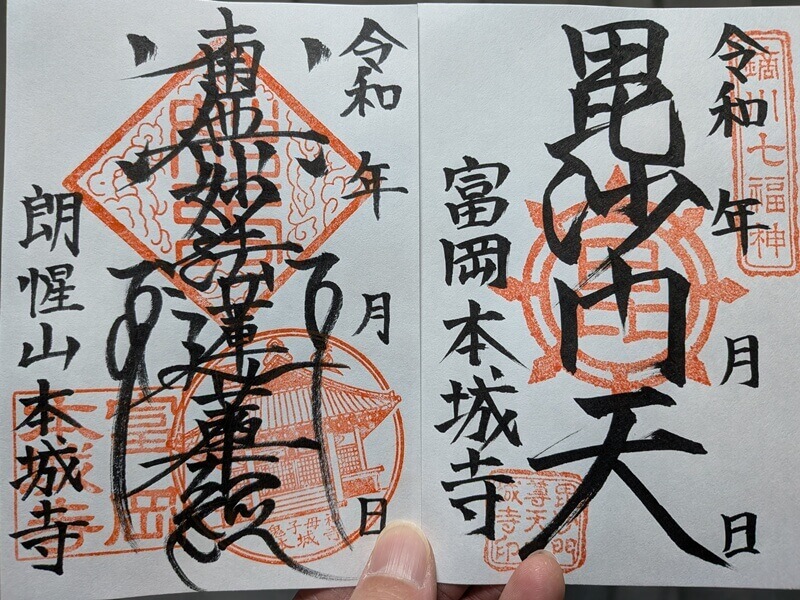 令和 年 月 日
南無妙法蓮華経
朗惺山本城寺
富岡
本城寺
令和 年 月 日
鏑川七福神
毘沙門天
富岡本城寺